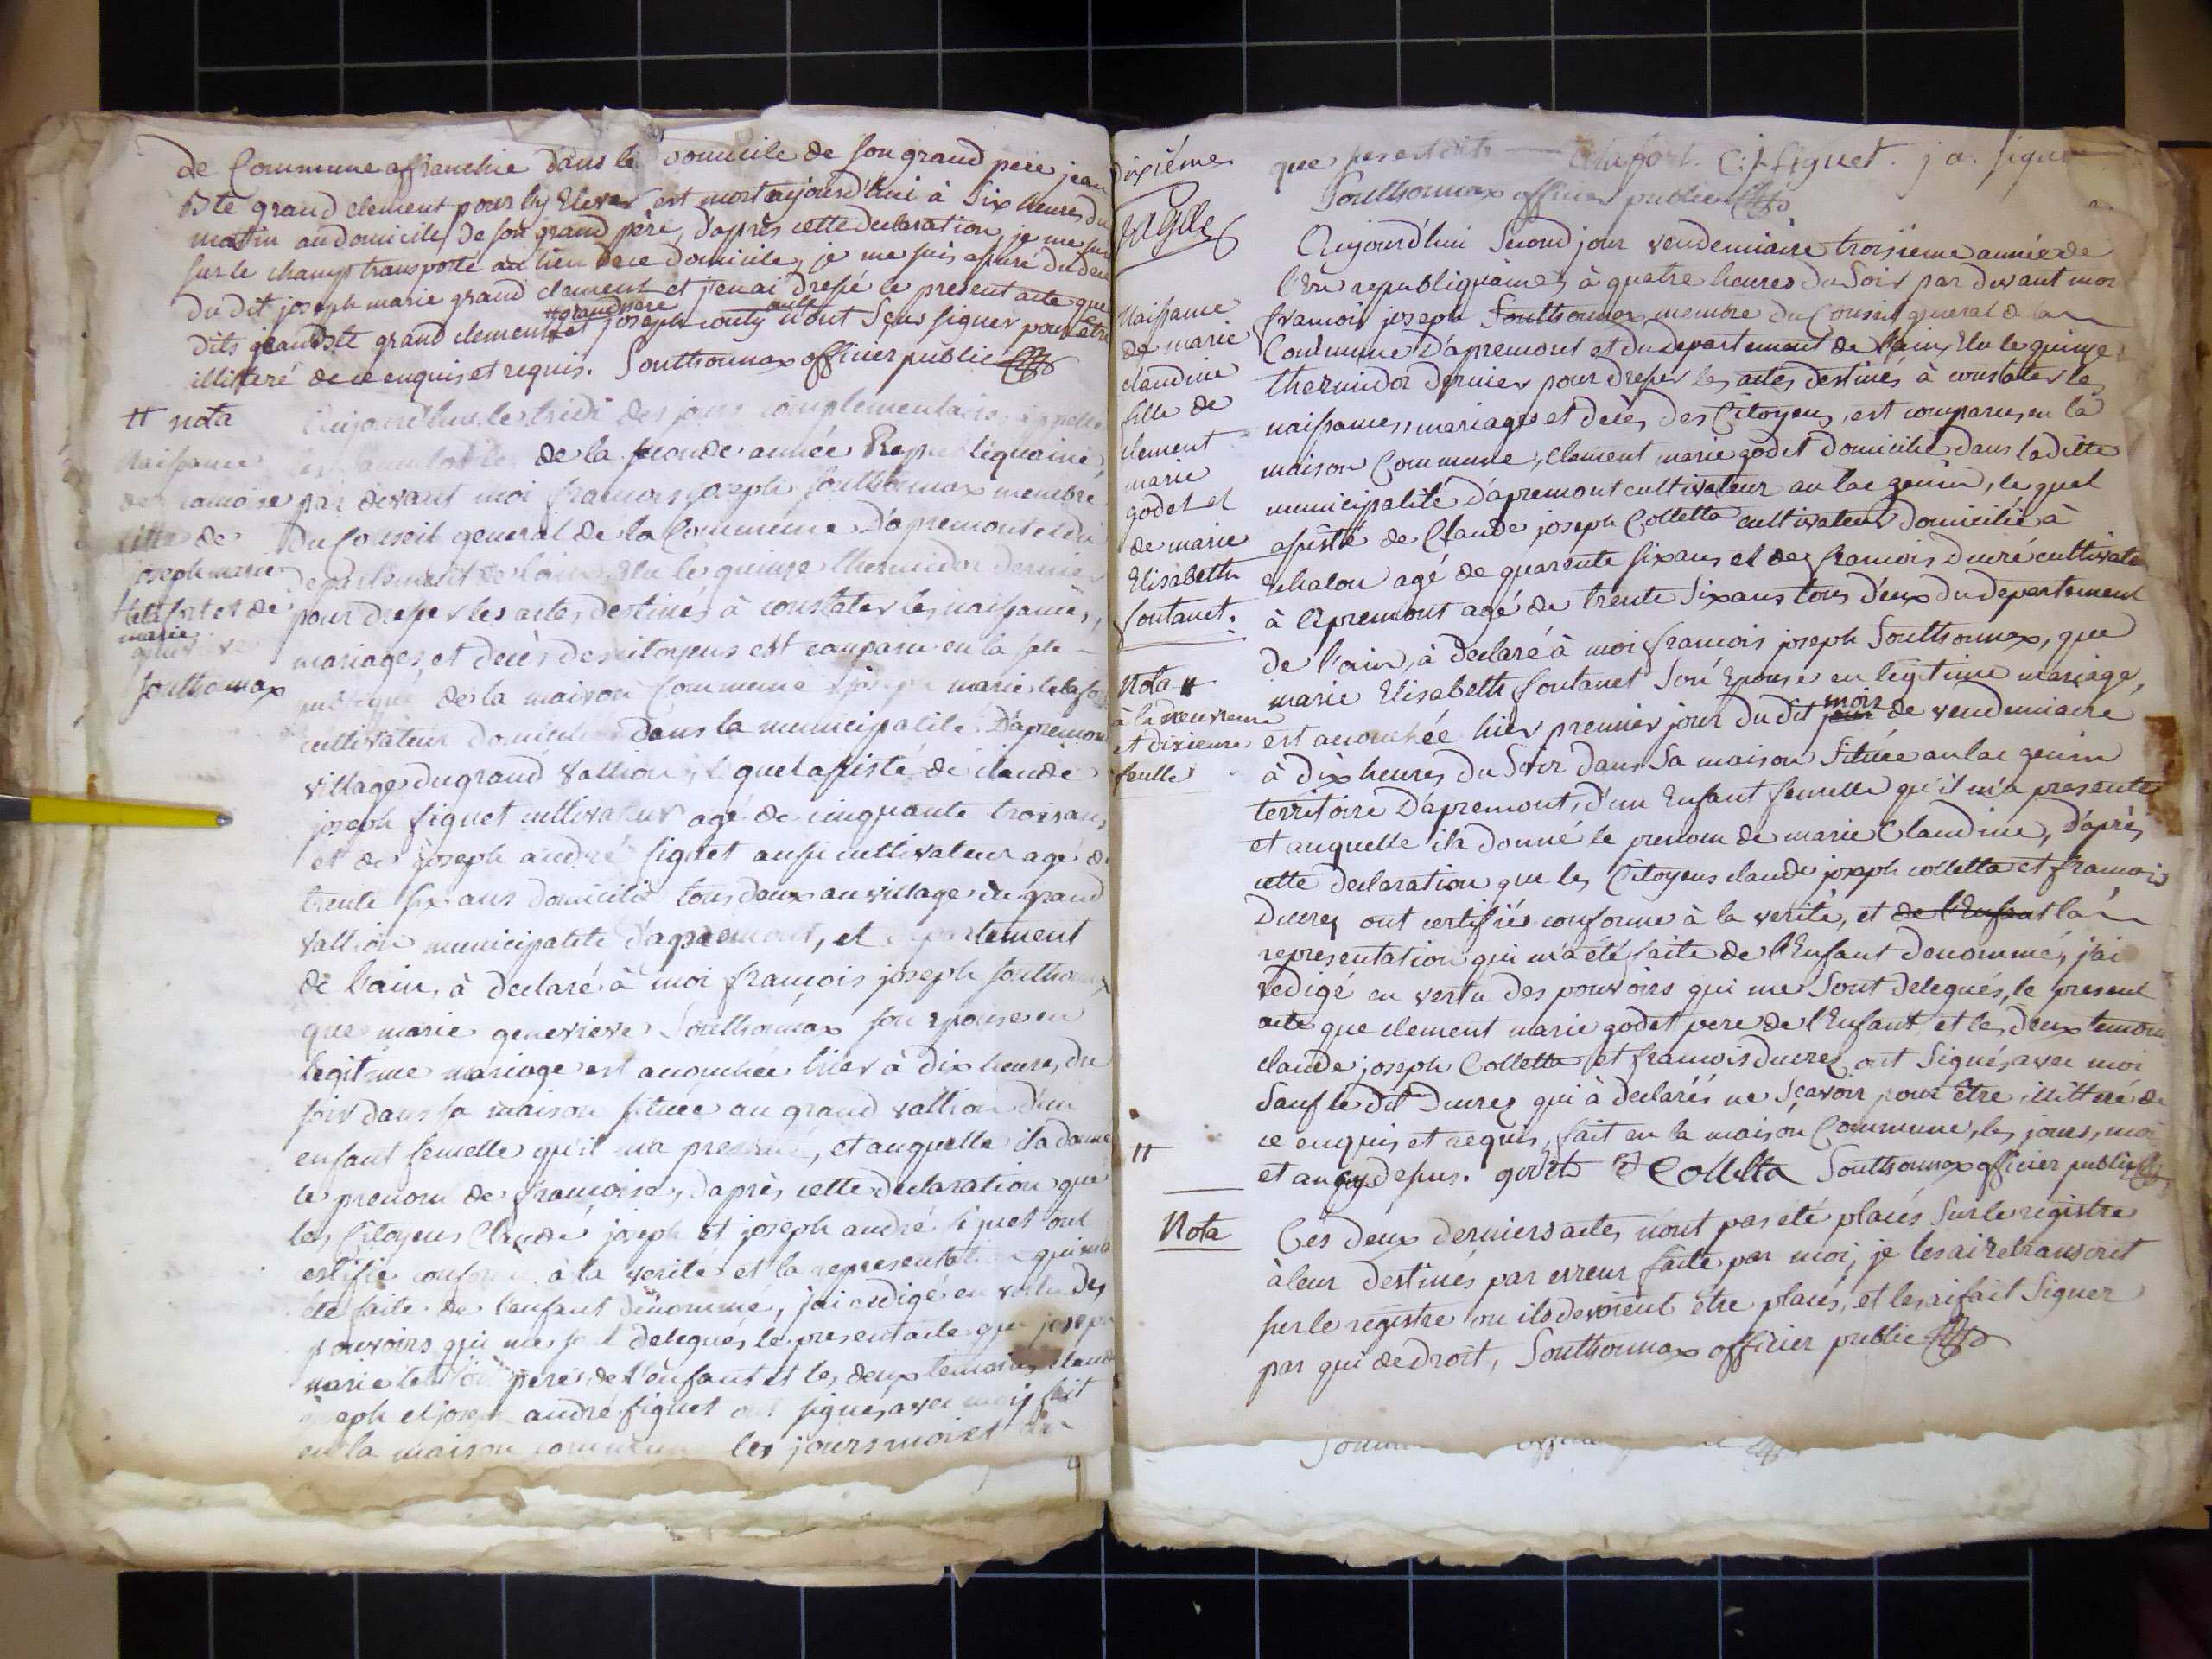 de Commune affranchie dans le domicile de son grand pere jean
Bte grand clement pour ly Elever est mort aujourd'hui à Six heures du
matin au domicile de son grand père, d'après cette declaration je me suis
sur le champs transporté au lieu de ce domicile, je me suis assuré du deces
du dit joseph marie grand clement et j'en ai dressé le present acte que
grandpere
dits jean Bte grand clement et joseph couty n'ont Sçus signer pour être
illitteré de ce enquis et requis. Sonthonnax officier public
# nota
Naissance
de francoise
fille de
joseph marie
tetafort et de
marie
Sonthonnax
Aujourd'hui le tridi des jours complementaires
de la seconde année Republiquaine,
par devant moi francois joseph Sonthonnax membre
du Conseil general de la Commune D'apremont et du
departement de l'ain, Elu le quinze thermidor dernier
pour dresser les actes destinés à constater les naissances,
mariages, et decès des citoyens est comparu en la sale
publique de la maison Commune joseph marie tetafort
cultivateur domicilié dans la municipalité D'apremont
village du grand vallion, lequel assisté de claude
joseph figuet cultivateur agé de cinquante trois ans,
et de joseph andré figuet aussi cultivateur agé de
trente six ans domicilié tous deux au village du grand
vallion municipalité d'apremont, et departement
de l'ain, à declaré à moi françois joseph sonthonnax
que marie genevieve Sonthonnax son epouse en
legitime mariage est acouchée hier à dix heures du
soir dans sa maison située au grand vallion d'un
enfant femelle qu'il m'a presenté, et auquelle il a donné
le prenom de francoise, d'après cette declaration que
les Citoyens Claude joseph et joseph andré figuet ont
certifié conforme à la verité et la representation qui m'a
été faite de l'enfant dénommé, j'ai redigé en vertu des
pouvoirs qui me sont delegués le present acte que joseph
marie tetafort pere de l'enfant et les deux temoins claude
joseph et joseph andré figuet ont signés avec moi, fait
en la maison commune les jours mois et an
dixiéme
que susdits tetafort. C: j figuet. j a. figuet
Sonthonnax officier public
Naissance
de marie
claudine
fille de
clement
marie
godet et
de marie
Elisabeth
fontanet.
Nota #
à la neuvieme
et dixieme
feuille
Aujourd'hui Second jour vendemiaire troisieme année de
l'Ere republiquaine, à quatre heures du Soir par devant moi
francois joseph Sonthonnax membre du Conseil general de la
Commune D'apremont et du departement de l'ain, Elu le quinze
thermidor dernier pour dresser les actes destinés à constater les
naissances, mariages et decès des Citoyens, est comparu en la
maison Commune, clement marie godet domicilié dans la ditte
municipalité D'apremont cultivateur au lac genin, le quel
assisté de Claude joseph Colletta cultivateur domicilié à
Echalon agé de quarente six ans et de francois Ducré cultivateur
à Apremont agé de trente Six ans tous deux du departement
de l'ain, à declaré à moi francois joseph Sonthonnax, que
marie Elisabeth fontanet Son Epouse en legitime mariage,
mois
est acouchée hier premier jour du dit jour de vendemiaire
à dix heures du Soir dans Sa maison Située au lac genin
territoire D'apremont, d'un Enfant femelle qu'il m'a presenté
et auquelle il a donné le prenom de marie Claudine, D'après
cette declaration que les Citoyens claude joseph colletta et francois
Ducrez ont certifiés conforme à la verité, et de l'Enfant la
representation qui m'a été faite de l'Enfant denommé, j'ai
redigé en vertu des pouvoirs qui me Sont delegués, le present
acte que clement marie godet pere de l'Enfant et les deux temoins
claude joseph Colletta et francois ducrez ont Signés avec moi
Sauf le dit Ducrez qui à declarés ne Sçavoir pour être illitteré de
ce enquis et requis, fait en la maison Commune, les jours, mois
# et an que dessus. godet Colletta Sonthonnax officier public
Nota
Ces deux derniers actes n'ont pas été placés Sur le registre
à leur destinés par erreur faite par moi, je les ai retranscrit
sur le registre ou ils devoient etre placés, et les ai fait Signer
par qui de droit, Sonthonnax officier public